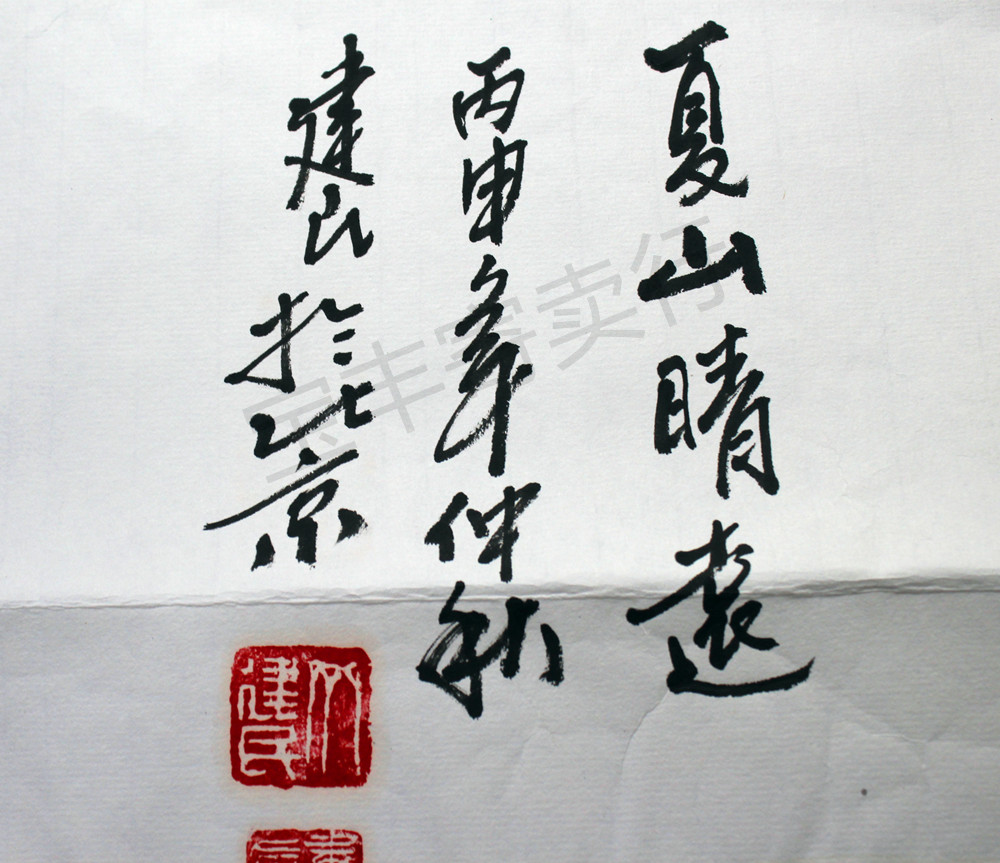 夏山晴远
丙申年仲秋
建民於北京
建民
宝丰寄卖行